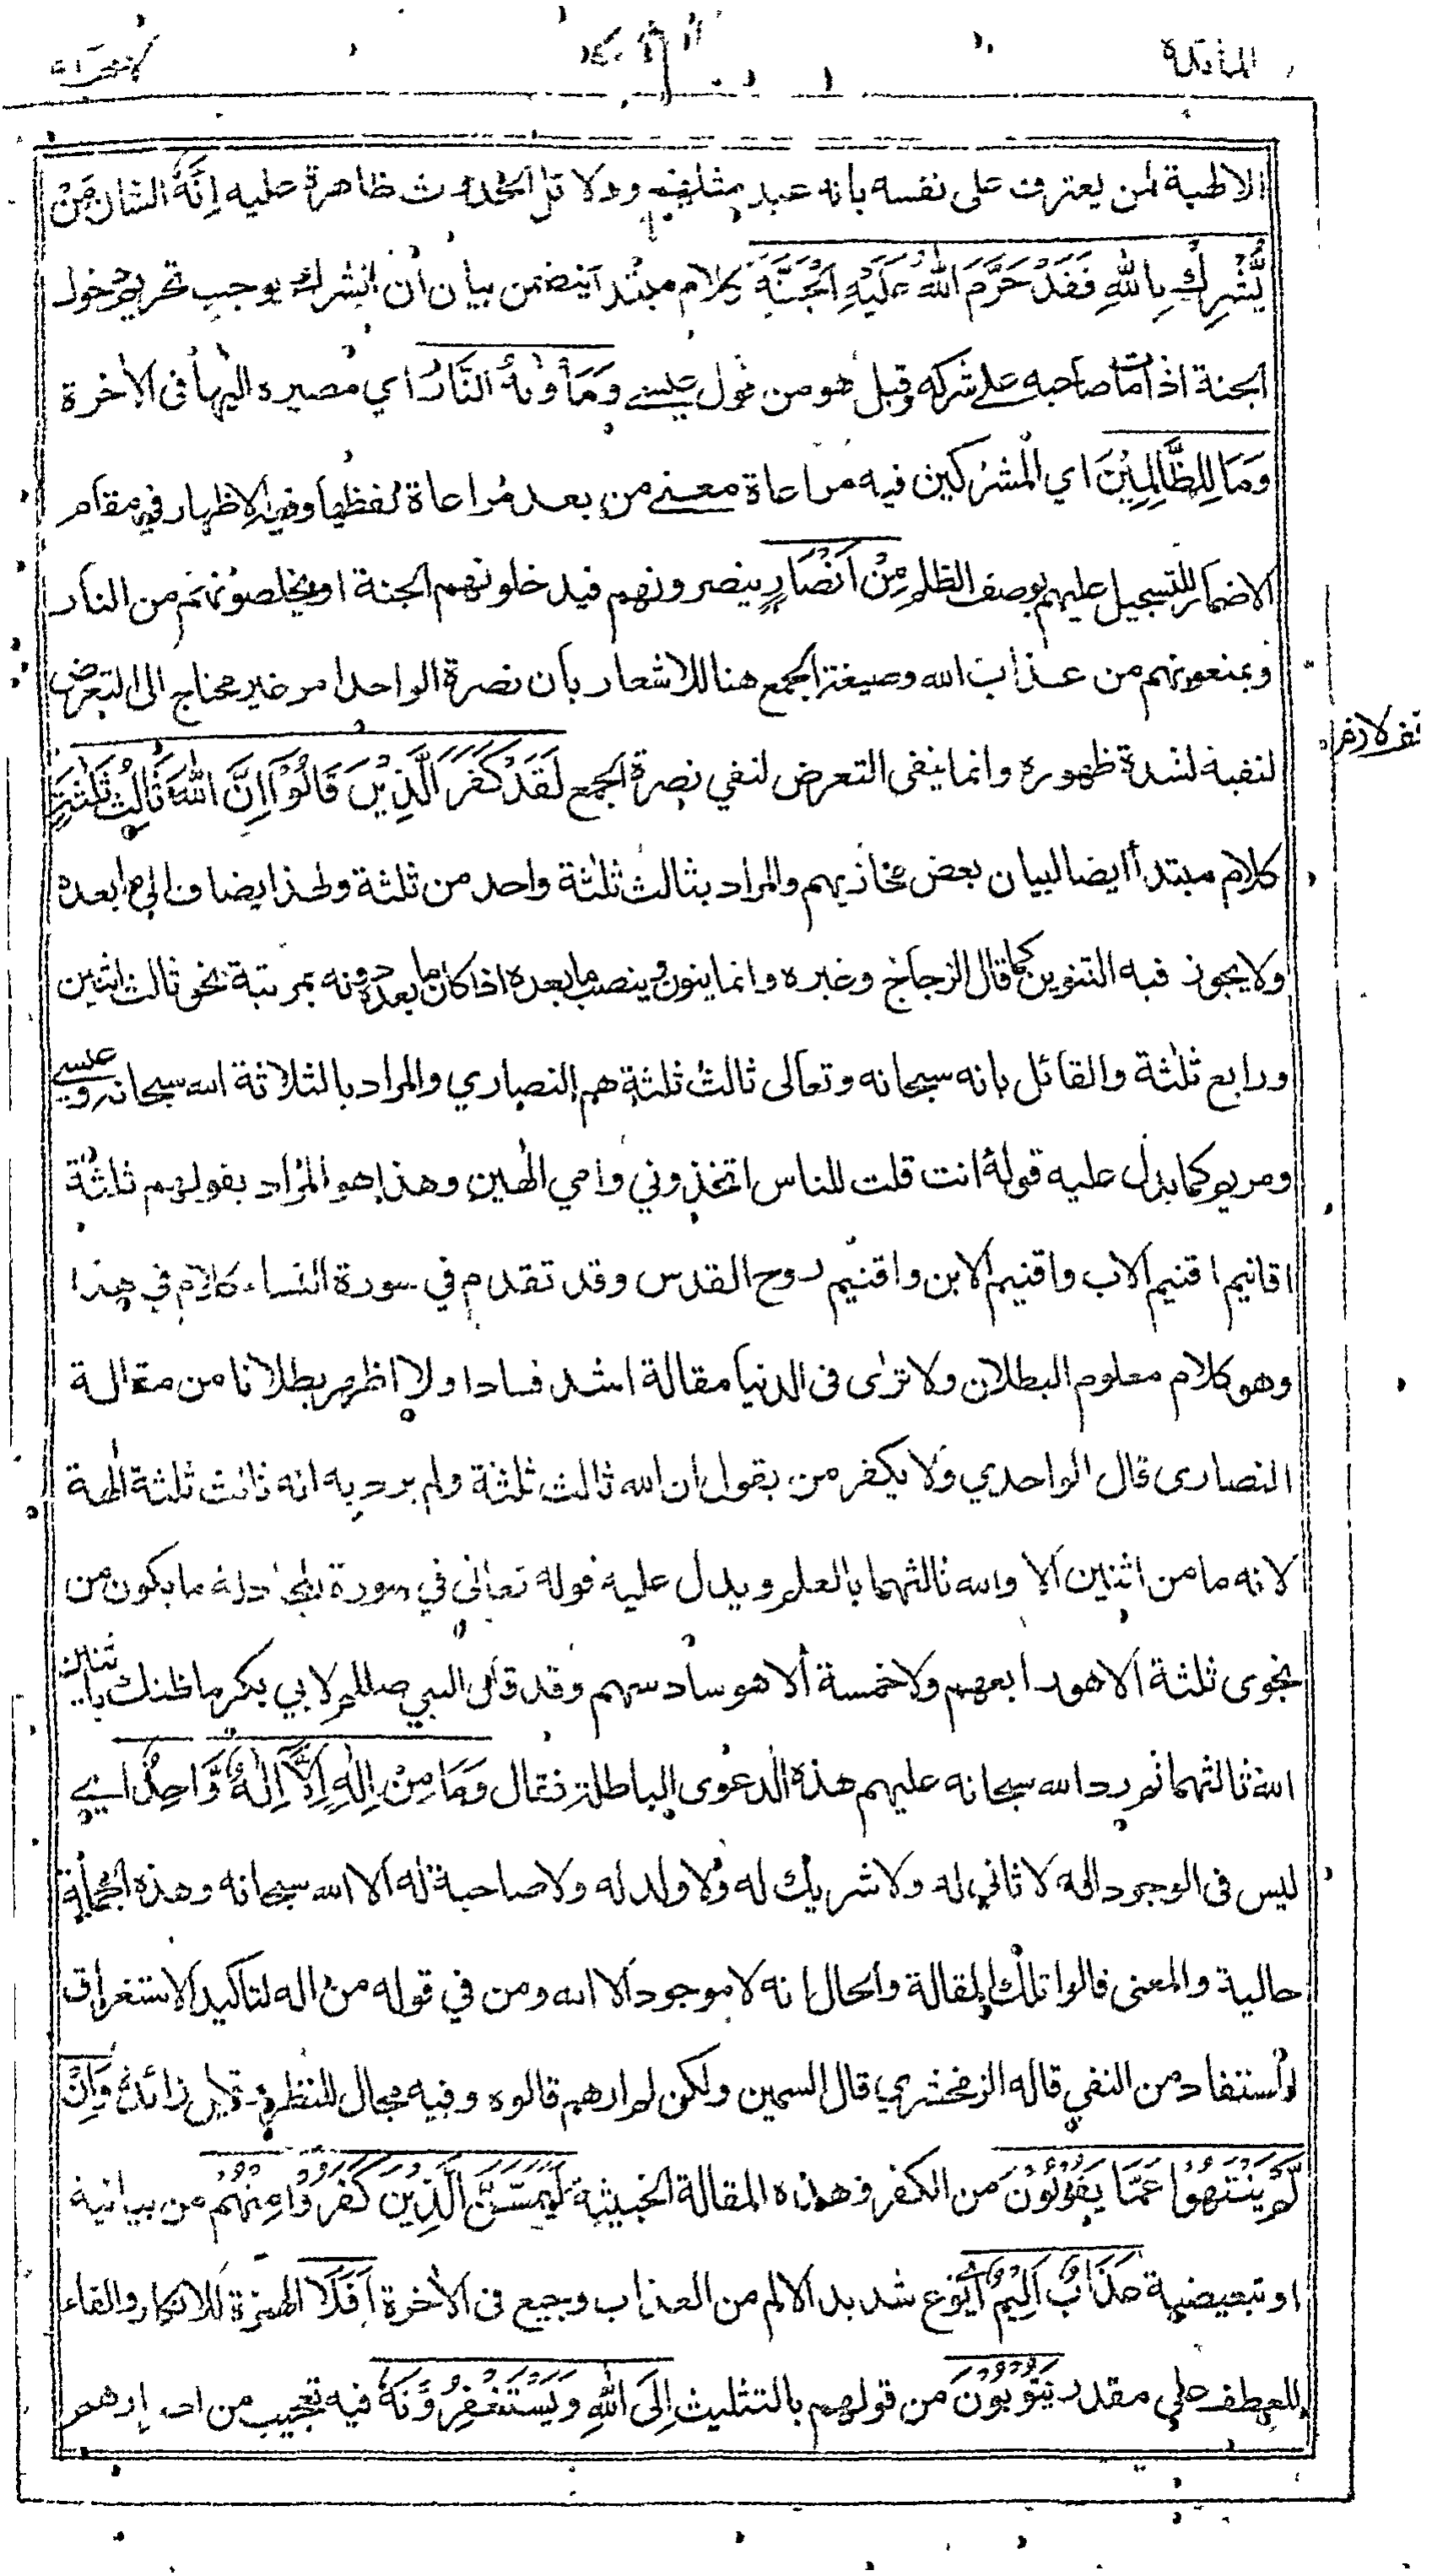 المائدة
الالهية لمن يعترف على نفسه بانه عبد مثلهم ودلائل الحدوث ظاهرة عليه اِنَّهٗ الشان مَنْ
يُّشْرِكْ بِاللّٰهِ فَقَدْ حَرَّمَ اللّٰهُ عَلَيْهِ الْجَنَّةَ كلام مبتدأ يتضمن بيان ان الشرك يوجب تحريم دخول
الجنة اذا مات صاحبه على شركه وقيل هو من قول عيسى وَمَأْوٰىهُ النَّارُ اي مصيره اليها فى الاخرة
وَمَا لِلظَّالِمِيْنَ اي المشركين فيه مراعاة معنى من بعد مراعاة لفظها وفيه الاظهار في مقام
الاضمار للتسجيل عليهم بوصف الظلم مِنْ اَنْصَارٍ ينصرونهم فيدخلونهم الجنة او يخلصونهم من النار
ويمنعونهم من عذاب الله وصيغة الجمع هنا للاشعار بان نصرة الواحد امر غير محتاج الى التعرض
لنفيه لشدة ظهوره وانما ينفى التعرض لنفي نصرة الجمع لَقَدْ كَفَرَ الَّذِيْنَ قَالُوْٓا اِنَّ اللّٰهَ ثَالِثُ ثَلٰثَةٍ
كلام مبتدأ ايضا لبيان بعض مخازيهم والمراد بثالث ثلثة واحد من ثلثة ولهذا يضاف الى ما بعده
ولا يجوز فيه التنوين كما قال الزجاج وغيره وانما ينون وينصب ما بعده اذا كان ما بعده دونه بمرتبة نحو ثالث اثنين
ورابع ثلثة والقائل بانه سبحانه وتعالى ثالث ثلثة هم النصاري والمراد بالثلاثة الله سبحانه وعيسى
ومريم كما يدل عليه قوله أانت قلت للناس اتخذوني وامي الهين وهذا هو المراد بقولهم ثلثة
اقانيم اقنيم الاب واقنيم الابن واقنيم روح القدس وقد تقدم في سورة النساء كلام في هذا
وهو كلام معلوم البطلان ولا ترى فى الدنيا مقالة اشد فسادا ولا اظهر بطلانا من مقالة
النصارى قال الواحدي ولا يكفر من يقول ان الله ثالث ثلثة ولم يرد به انه ثالث ثلثة الهة
لانه ما من اثنين الا والله ثالثهما بالعلم ويدل عليه قوله تعالى في سورة المجادلة ما يكون من
نجوى ثلثة الا هو رابعهم ولا خمسة الا هو سادسهم وقد قال النبي صللم لابي بكر ما ظنك باثنين
الله ثالثهما ثم رد الله سبحانه عليهم هذه الدعوى الباطلة فقال وَمَا مِنْ اِلٰهٍ اِلَّآ اِلٰهٌ وَّاحِدٌ اي
ليس فى الوجود اله لا ثاني له ولا شريك له ولا ولد له ولا صاحبة له الا الله سبحانه وهذه الجملة
حالية والمعنى قالوا تلك المقالة والحال انه لا موجود الا الله ومن في قوله من اله لتاكيد الاستغراق
المستفاد من النفي قاله الزمخشري قال السمين ولكن لم ارهم قالوه وفيه مجال للنظر وقيل زائدة وَاِنْ
لَّمْ يَنْتَهُوْا عَمَّا يَقُوْلُوْنَ من الكفر وهذه المقالة الخبيثة لَيَمَسَّنَّ الَّذِيْنَ كَفَرُوْا مِنْهُمْ من بيانية
او تبعيضية عَذَابٌ اَلِيْمٌ اي نوع شديد الالم من العذاب وجيع فى الاخرة اَفَلَا الهمزة للانكار والفاء
للعطف على مقدر يَتُوْبُوْنَ من قولهم بالتثليث اِلَى اللّٰهِ وَيَسْتَغْفِرُوْنَهٗ فيه تعجيب من اصرارهم